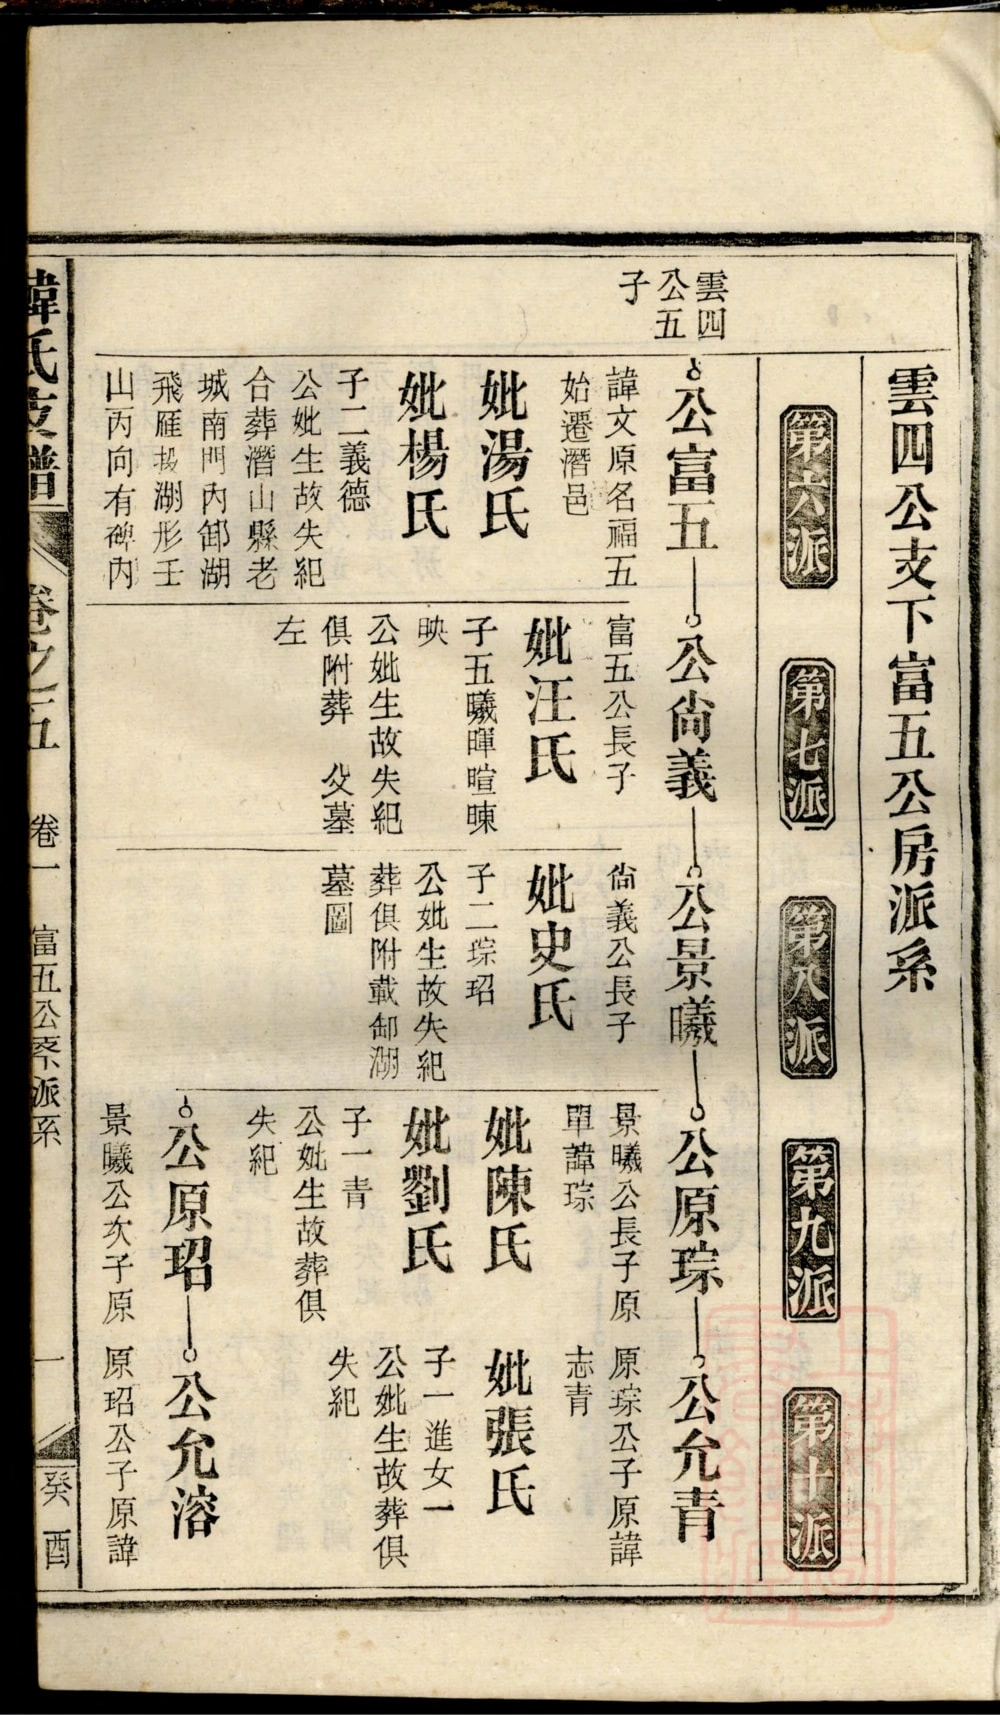 雲四公支下富五公房派系
第六派
第七派
第八派
第九派
第十派
雲四
公五
子
公富五
諱文原名福五
始遷潛邑
妣湯氏
妣楊氏
子二義德
公妣生故失紀
合葬潛山縣老
城南門內卸湖
飛雁投湖形壬
山丙向有碑內
公尙義
富五公長子
妣汪氏
子五曦暉暄暕
映
公妣生故失紀
俱附葬 父墓
左
公景曦
尙義公長子
妣史氏
子二琮玿
公妣生故失紀
葬俱附載卸湖
墓圖
公原琮
景曦公長子原
單諱琮
妣陳氏
妣劉氏
子一青
公妣生故葬俱
失紀
公原玿
景曦公次子原
公允青
原琮公子原諱
志青
妣張氏
子一進女一
公妣生故葬俱
失紀
公允溶
原玿公子原諱
韓氏支譜
卷之五
卷一
富五公房派系
一
癸酉